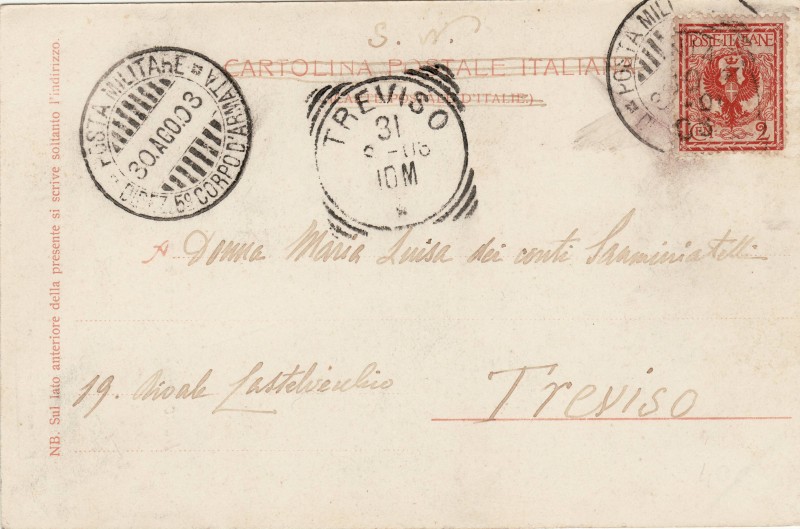 S. N.
CARTOLINA POSTALE ITALIANA
(CARTE POSTALE D'ITALIE)
POSTA MILITARE
30.AGO.03
DIREZ. 5º CORPO D'ARMATA
TREVISO
31
10M
POSTA MILI
POSTE ITALIANE
2
A Donna Maria Luisa dei conti Sanminiatelli
19. Viale Castelvecchio
Treviso
NB. Sul lato anteriore della presente si scrive soltanto l'indirizzo.